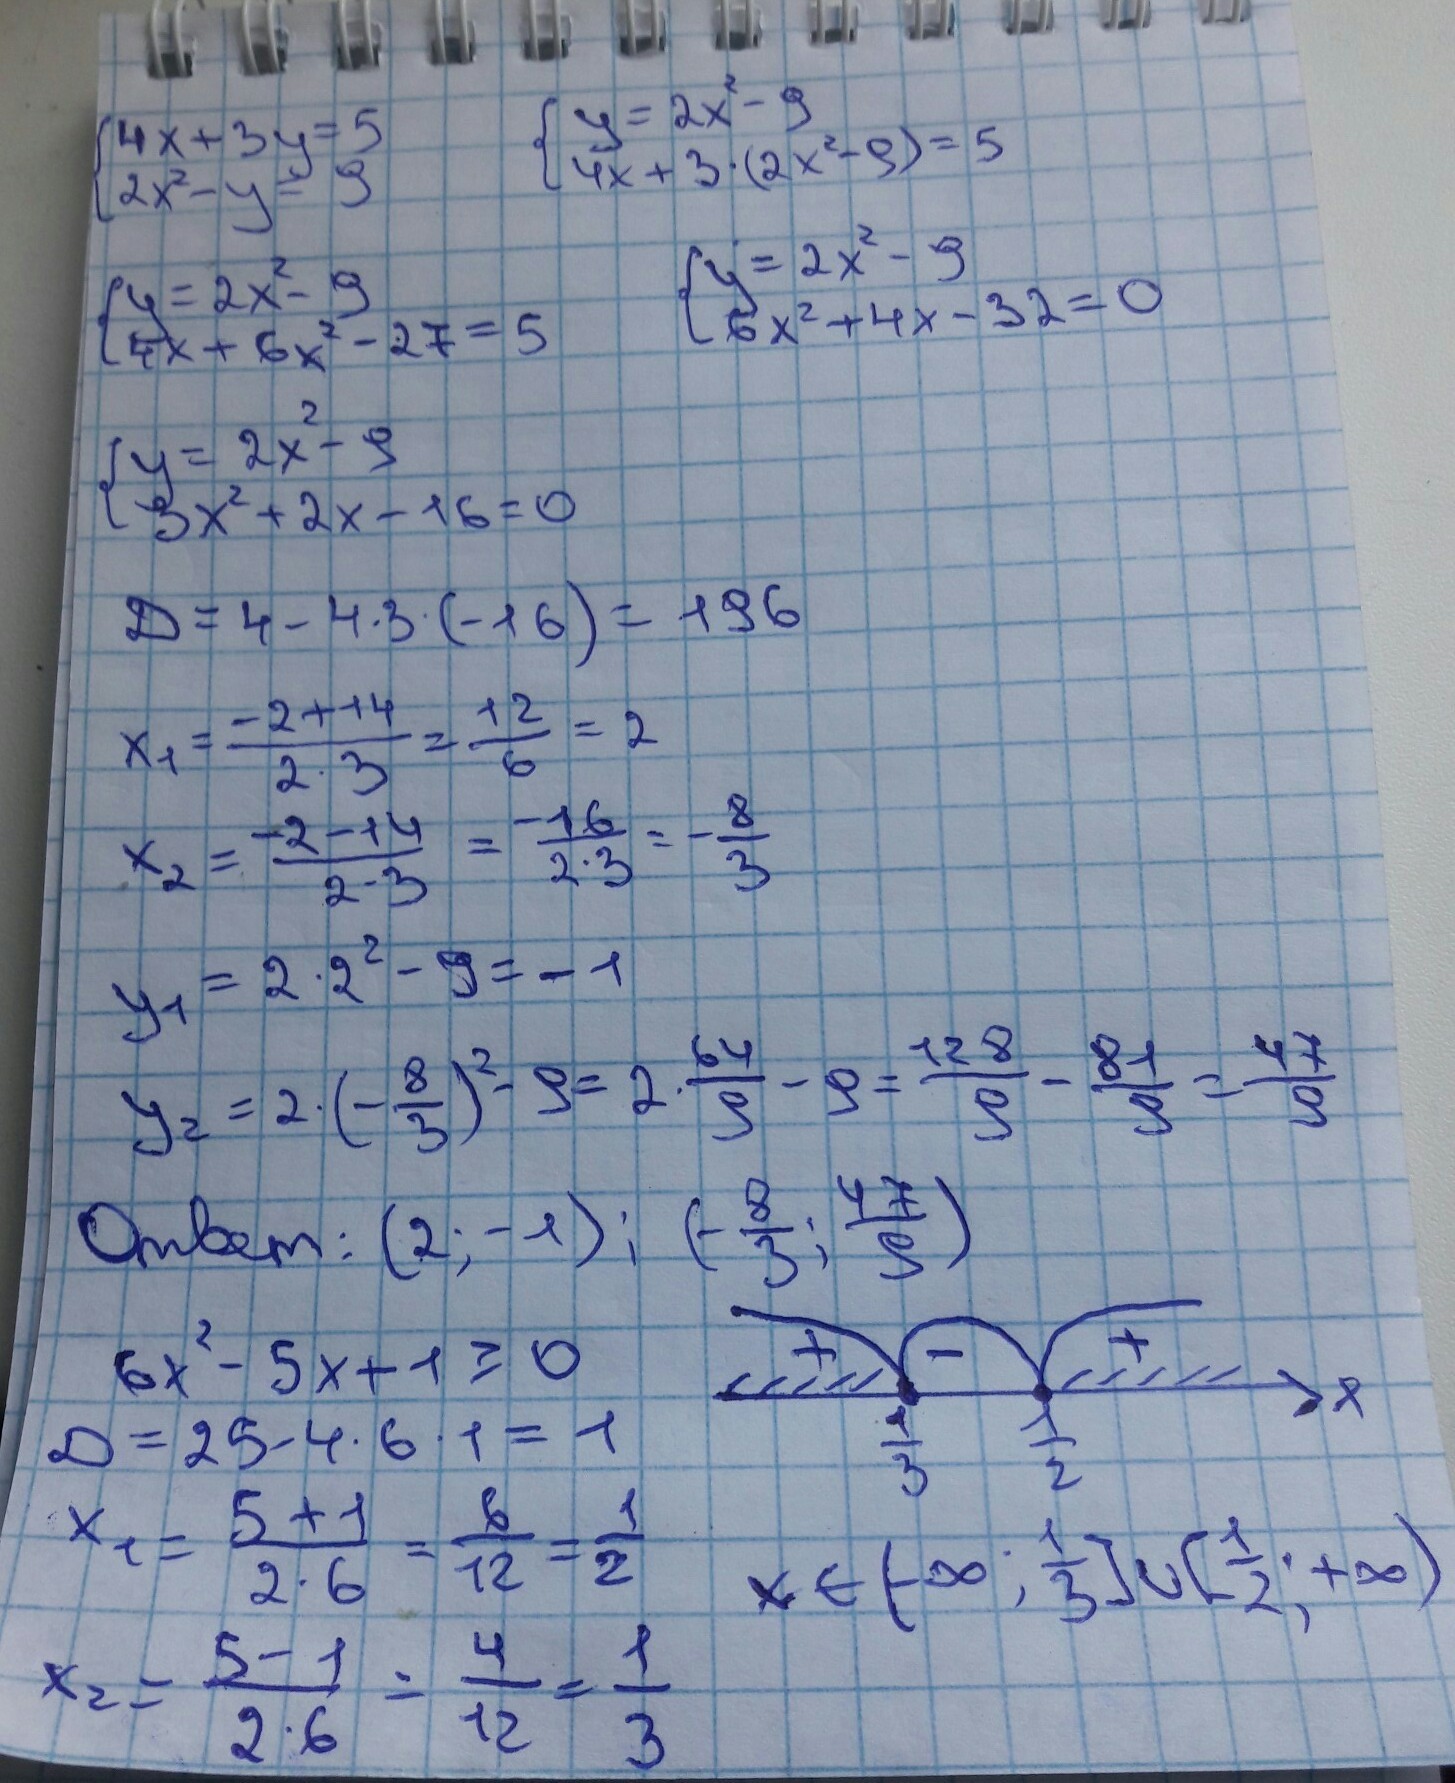 {4x+3y=5
2x²-y=9
{y=2x²-9
4x+3·(2x²-9)=5
{y=2x²-9
4x+6x²-27=5
{y=2x²-9
6x²+4x-32=0
{y=2x²-9
3x²+2x-16=0
D=4-4·3·(-16)=196
x₁=(-2+14)/(2·3)=12/6=2
x₂=(-2-14)/(2·3)=-16/(2·3)=-8/3
y₁=2·2²-9=-1
y₂=2·(-8/3)²-9=2·64/9-9=128/9-81/9=47/9
Ответ: (2;-1); (-8/3; 47/9)
6x²-5x+1≥0
D=25-4·6·1=1
x₁=(5+1)/(2·6)=6/12=1/2
x₂=(5-1)/(2·6)=4/12=1/3
+ - +
1/3 1/2 x
x∈(-∞; 1/3]∪[1/2; +∞)